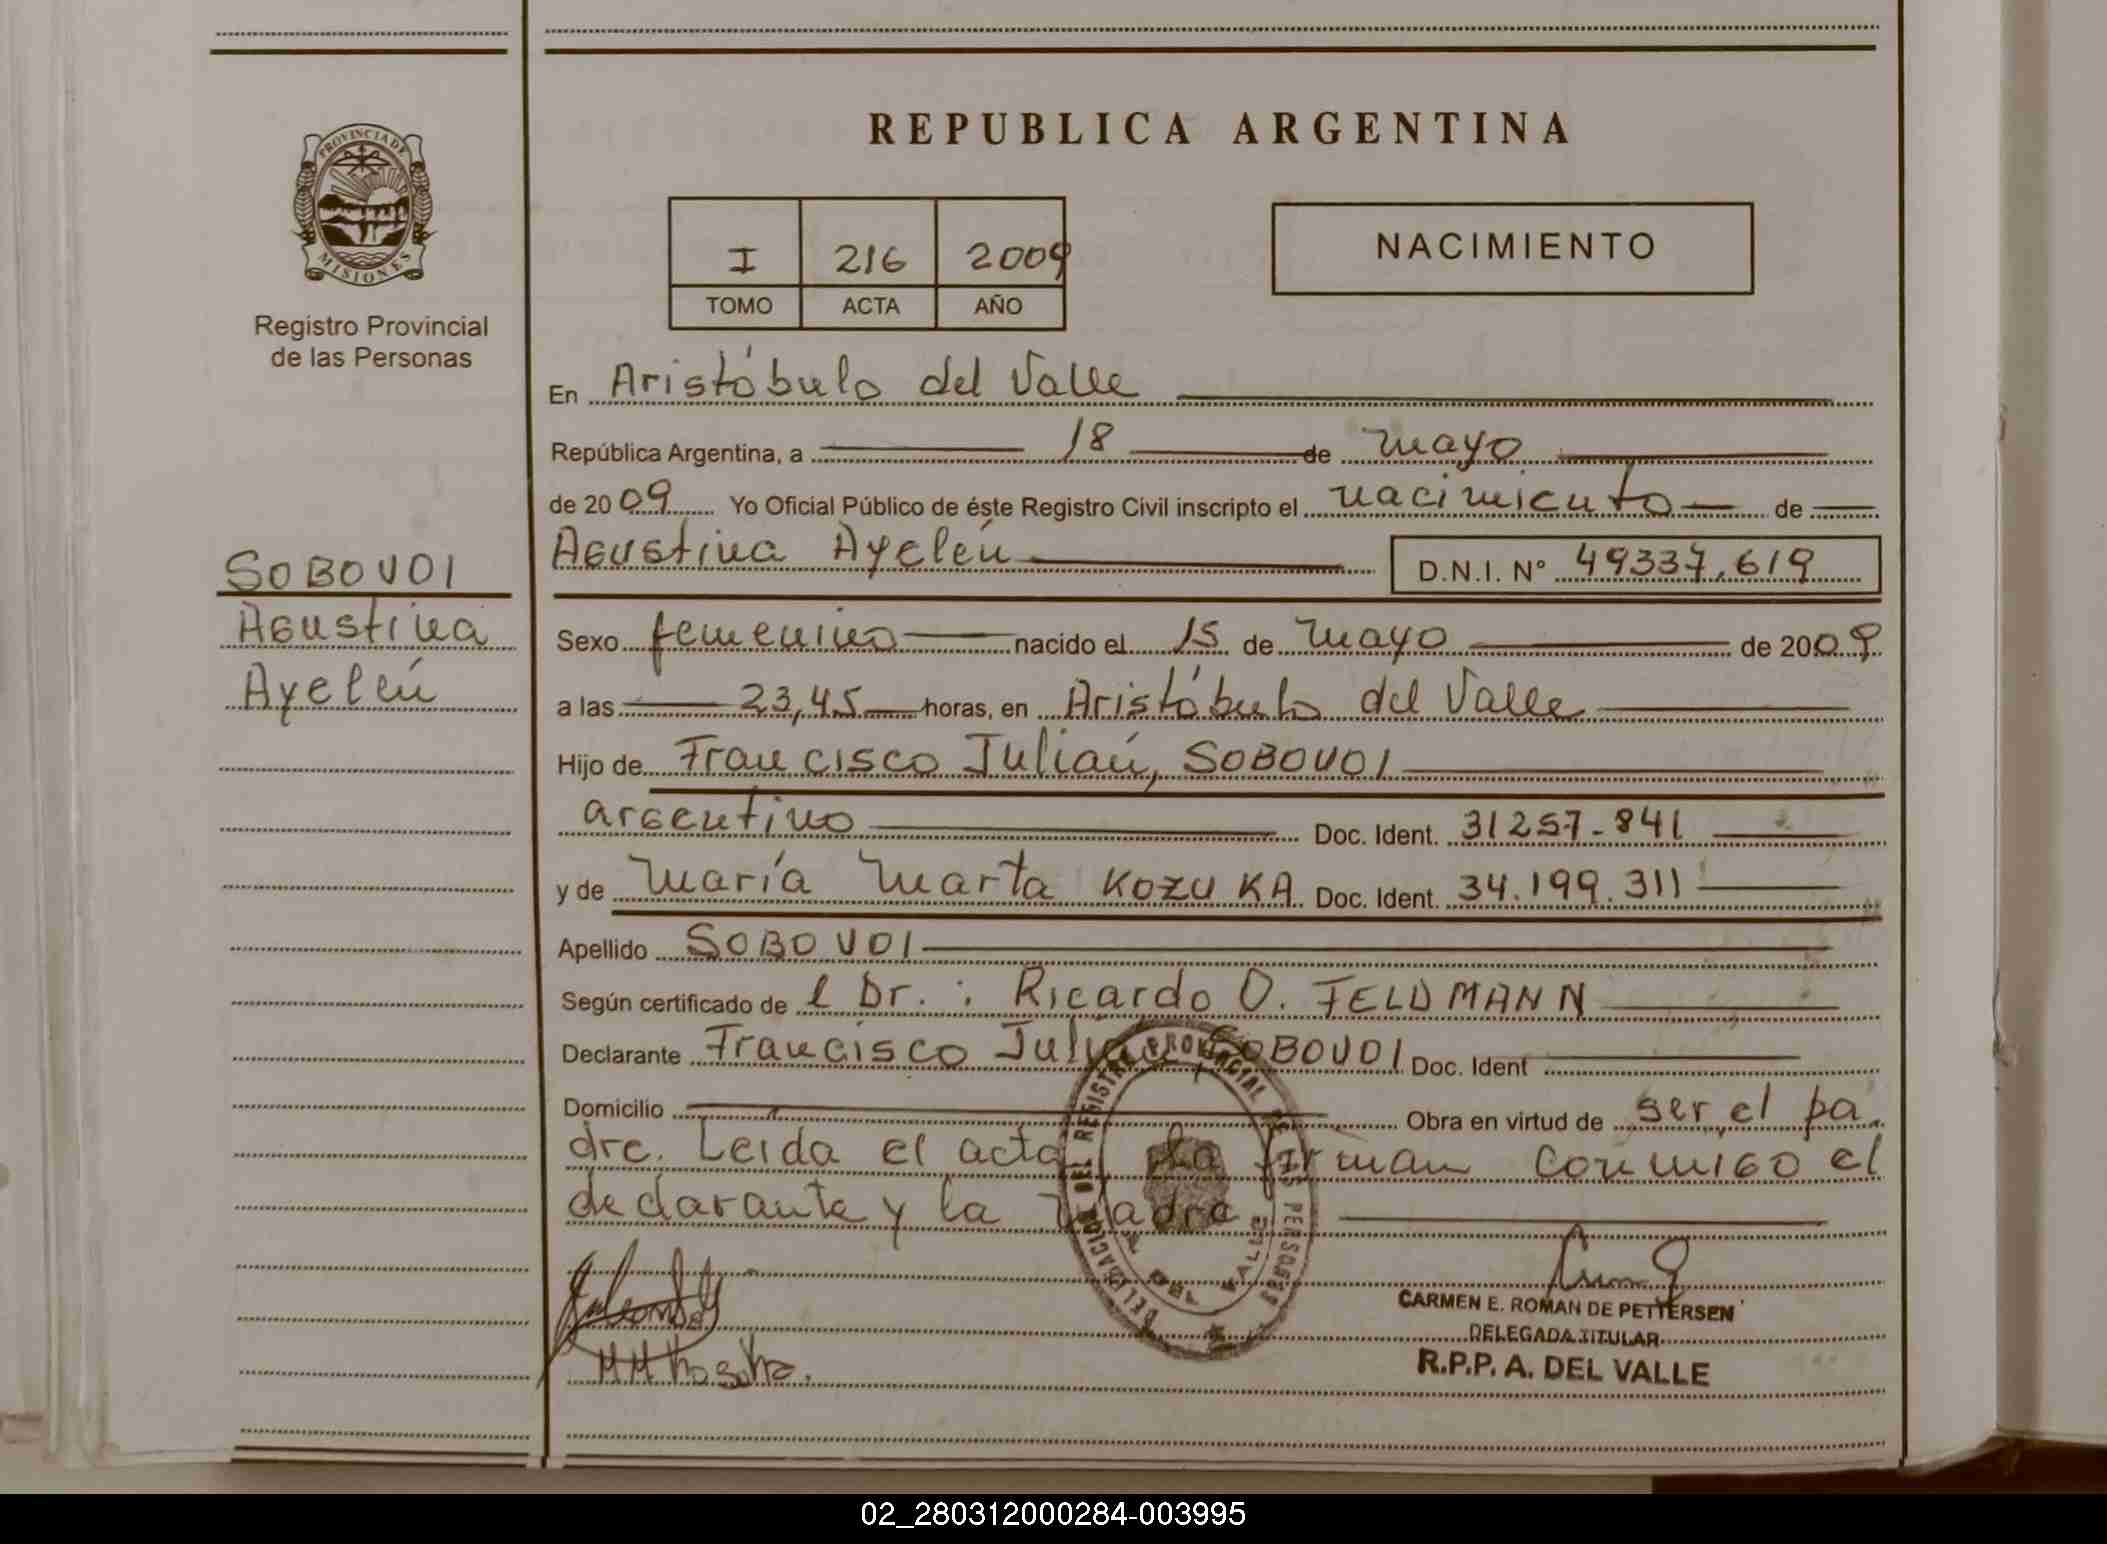 REPUBLICA ARGENTINA
PROVINCIA DE MISIONES
Registro Provincial
de las Personas
I 216 2009
TOMO ACTA AÑO
NACIMIENTO
En Aristóbulo del Valle
República Argentina, a 18 de mayo
de 2009 Yo Oficial Público de éste Registro Civil inscripto el nacimiento de
Agustina Ayelén D.N.I. N° 49337.619
SOBOVOI
Agustina
Ayelén
Sexo femenino nacido el 15 de mayo de 2009
a las 23,45 horas, en Aristóbulo del Valle
Hijo de Francisco Julián, SOBOVOI
argentino Doc. Ident. 31257-841
y de María Marta KOZUKA Doc. Ident. 34.199.311
Apellido SOBOVOI
Según certificado de l Dr. : Ricardo O. FELDMANN
Declarante Francisco Julián SOBOVOI Doc. Ident
Domicilio Obra en virtud de ser el pa
dre. Leida el acta la firman conmigo el
declarante y la madre
DELEGACION DEL REGISTRO PROVINCIAL DE LAS PERSONAS
DEL VALLE
CARMEN E. ROMAN DE PETTERSEN
DELEGADA TITULAR
R.P.P. A. DEL VALLE
02_280312000284-003995